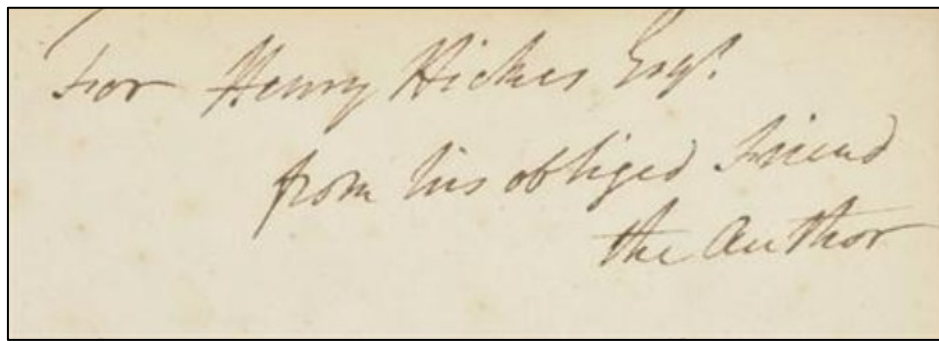 For Henry Hickes Esqr.
from his obliged Friend
the Author